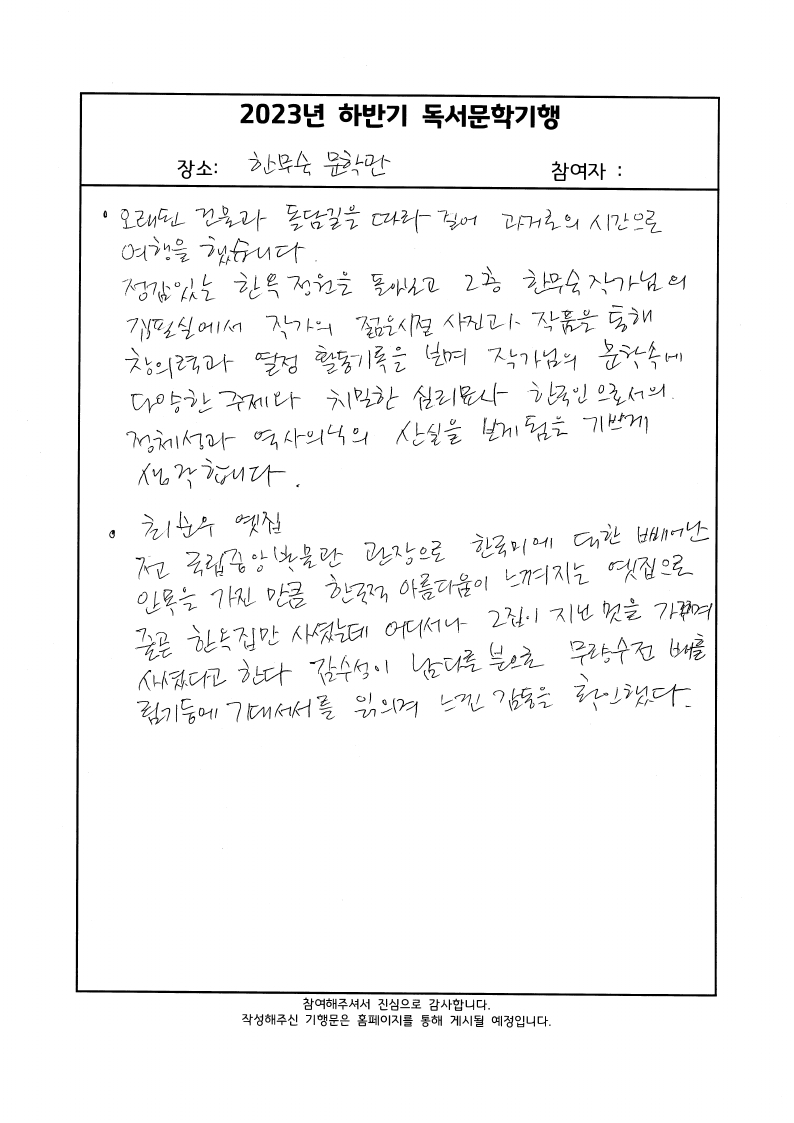 2023년 하반기 독서문학기행
장소: 한무숙 문학관 참여자 :
• 오래된 건물과 돌담길을 따라 걸어 과거로의 시간으로
여행을 했습니다.
정감있는 한옥 정원을 돌아보고 2층 한무숙 작가님의
집필실에서 작가의 젊은시절 사진과 작품을 통해
창의력과 열정 활동기록을 보며 작가님의 문학속에
다양한 주제와 치밀한 심리묘사 한국인으로서의
정체성과 역사의식의 산실을 보게됨을 기쁘게
생각합니다.
• 최순우 옛집
전 국립중앙박물관 관장으로 한국미에 대한 빼어난
안목을 가진 만큼 한국적 아름다움이 느껴지는 옛집으로
줄곧 한옥집만 사셨는데 어디서나 그집이 지닌 멋을 가꾸며
사셨다고 한다 감수성이 남다른 분으로 무량수전 배흘
림기둥에 기대서서를 읽으며 느낀 감동을 확인했다.
참여해주셔서 진심으로 감사합니다.
작성해주신 기행문은 홈페이지를 통해 게시될 예정입니다.